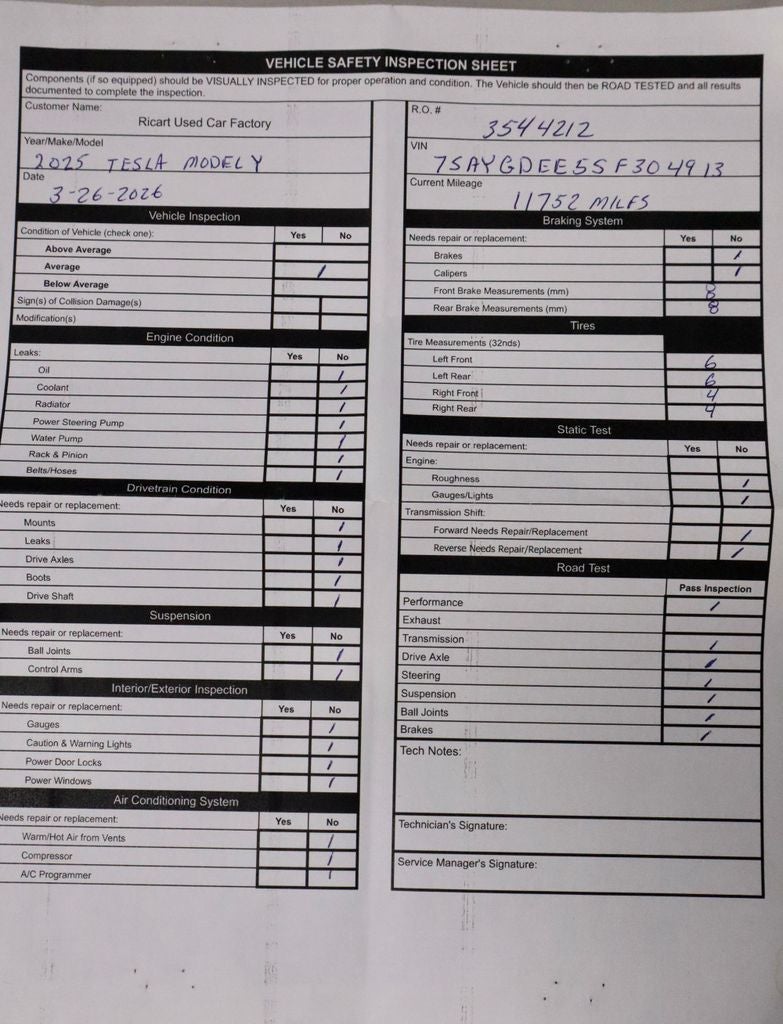 VEHICLE SAFETY INSPECTION SHEET
Components (if so equipped) should be VISUALLY INSPECTED for proper operation and condition. The Vehicle should then be ROAD TESTED and all results
documented to complete the inspection.
Customer Name:
Ricart Used Car Factory
Year/Make/Model
2025 TESLA MODEL Y
Date
3-26-2026
Vehicle Inspection
Condition of Vehicle (check one): Yes No
Above Average
Average /
Below Average
Sign(s) of Collision Damage(s)
Modification(s)
Engine Condition
Leaks: Yes No
Oil /
Coolant /
Radiator /
Power Steering Pump /
Water Pump /
Rack & Pinion /
Belts/Hoses /
Drivetrain Condition
Needs repair or replacement: Yes No
Mounts /
Leaks /
Drive Axles /
Boots /
Drive Shaft /
Suspension
Needs repair or replacement: Yes No
Ball Joints /
Control Arms /
Interior/Exterior Inspection
Needs repair or replacement: Yes No
Gauges /
Caution & Warning Lights /
Power Door Locks /
Power Windows /
Air Conditioning System
Needs repair or replacement: Yes No
Warm/Hot Air from Vents /
Compressor /
A/C Programmer /
R.O. #
3544212
VIN
7SAYGDEE5SF304913
Current Mileage
11752 MILES
Braking System
Needs repair or replacement: Yes No
Brakes /
Calipers /
Front Brake Measurements (mm) 8
Rear Brake Measurements (mm) 8
Tires
Tire Measurements (32nds)
Left Front 6
Left Rear 6
Right Front 4
Right Rear 4
Static Test
Needs repair or replacement: Yes No
Engine:
Roughness /
Gauges/Lights /
Transmission Shift:
Forward Needs Repair/Replacement /
Reverse Needs Repair/Replacement /
Road Test
Pass Inspection
Performance /
Exhaust
Transmission /
Drive Axle /
Steering /
Suspension /
Ball Joints /
Brakes /
Tech Notes:
Technician's Signature:
Service Manager's Signature: